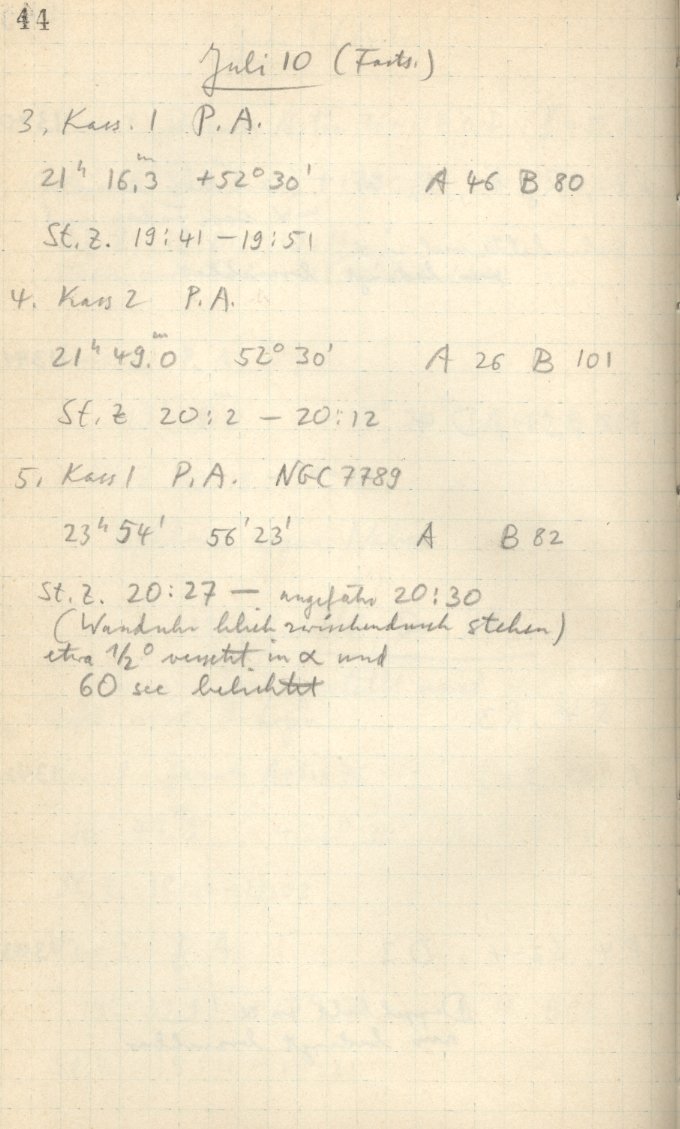 44
Juli 10 (Forts.)
3. Kass. 1 P.A.
21ʰ 16,3ᵐ +52° 30' A 46 B 80
St. Z. 19:41 – 19:51
4. Kass 2 P.A.
21ʰ 49.0ᵐ 52° 30' A 26 B 101
St. Z 20:2 – 20:12
5. Kass 1 P.A. NGC 7789
23ʰ 54' 56' 23' A B 82
St. Z. 20:27 — ungefähr 20:30
(Wanduhr blieb zwischendurch stehen)
etwa 1/2° versetzt in α und
60 sec belichtet